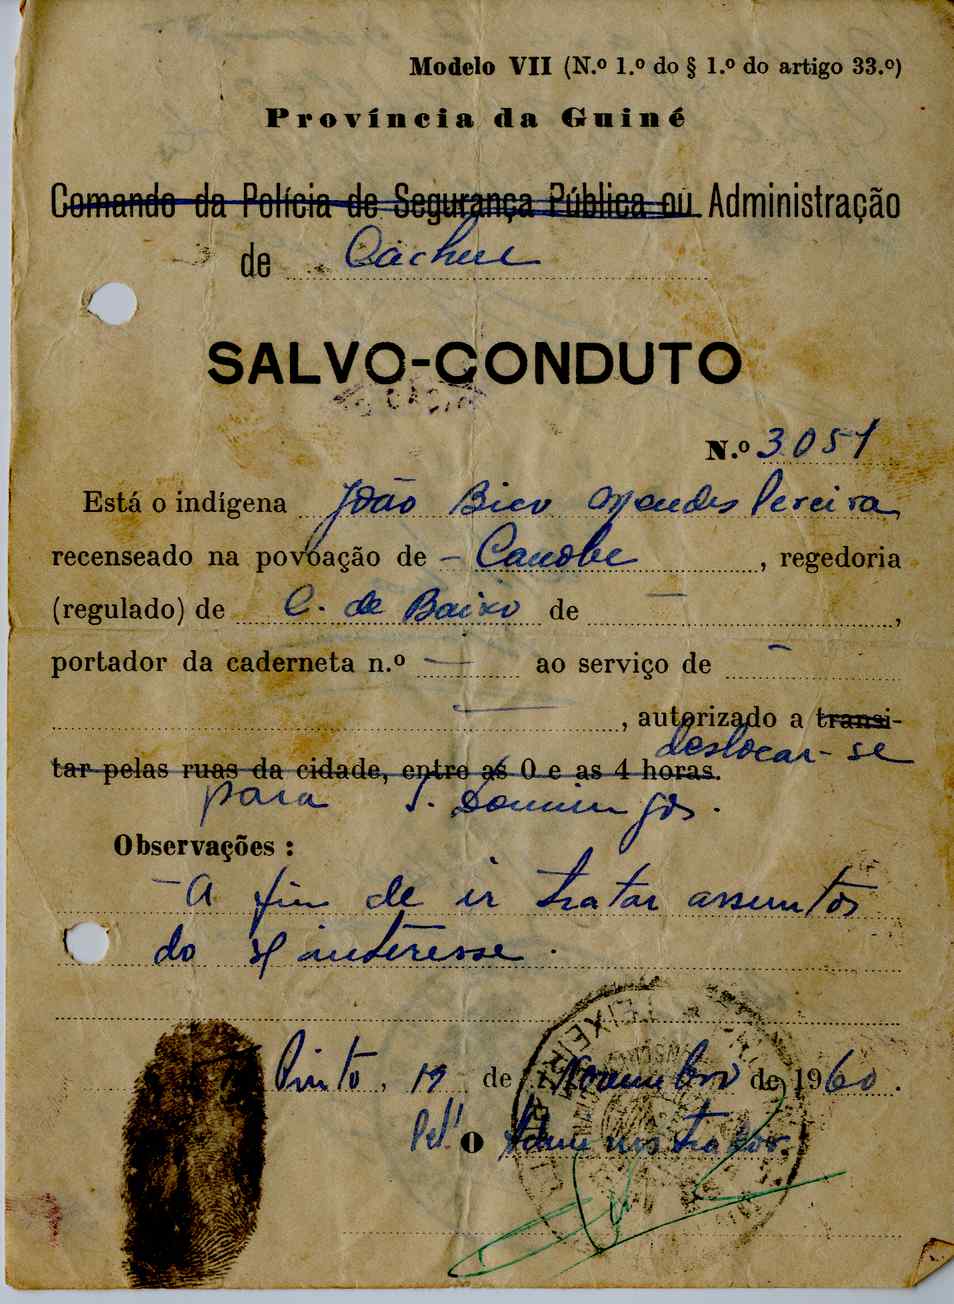 Modelo VII (N.º 1.º do § 1.º do artigo 33.º)
Província da Guiné
Comando da Polícia de Segurança Pública ou Administração
de Cacheu
SALVO-CONDUTO
N.º 3051
Está o indígena João Bico Mendes Pereira
recenseado na povoação de - Canobe, regedoria
(regulado) de C. de Baixo de —,
portador da caderneta n.º — ao serviço de —
—, autorizado a transi-
deslocar-se
tar pelas ruas da cidade, entre as 0 e as 4 horas.
para S. Domingos.
Observações :
- A fim de ir tratar assuntos
do s/ interesse.
Pinto, 19 de Novembro de 1960.
Pel' O Administrador.